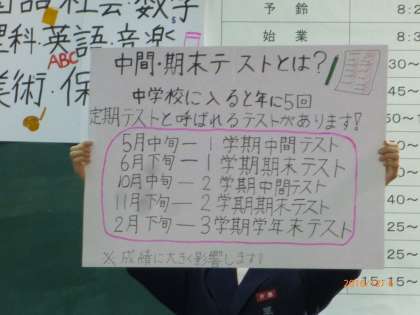 国語・社会・数学
理科・英語・音楽
ABC
美術・保
予鈴 8:2
始業 8:
中間・期末テストとは?
中学校に入ると年に5回
定期テストと呼ばれるテストがあります!
5月中旬ー1学期中間テスト
6月下旬ー1学期期末テスト
10月中旬ー2学期中間テスト
11月下旬ー2学期期末テスト
2月下旬ー3学期学年末テスト
※成績に大きく影響します!
15:15~